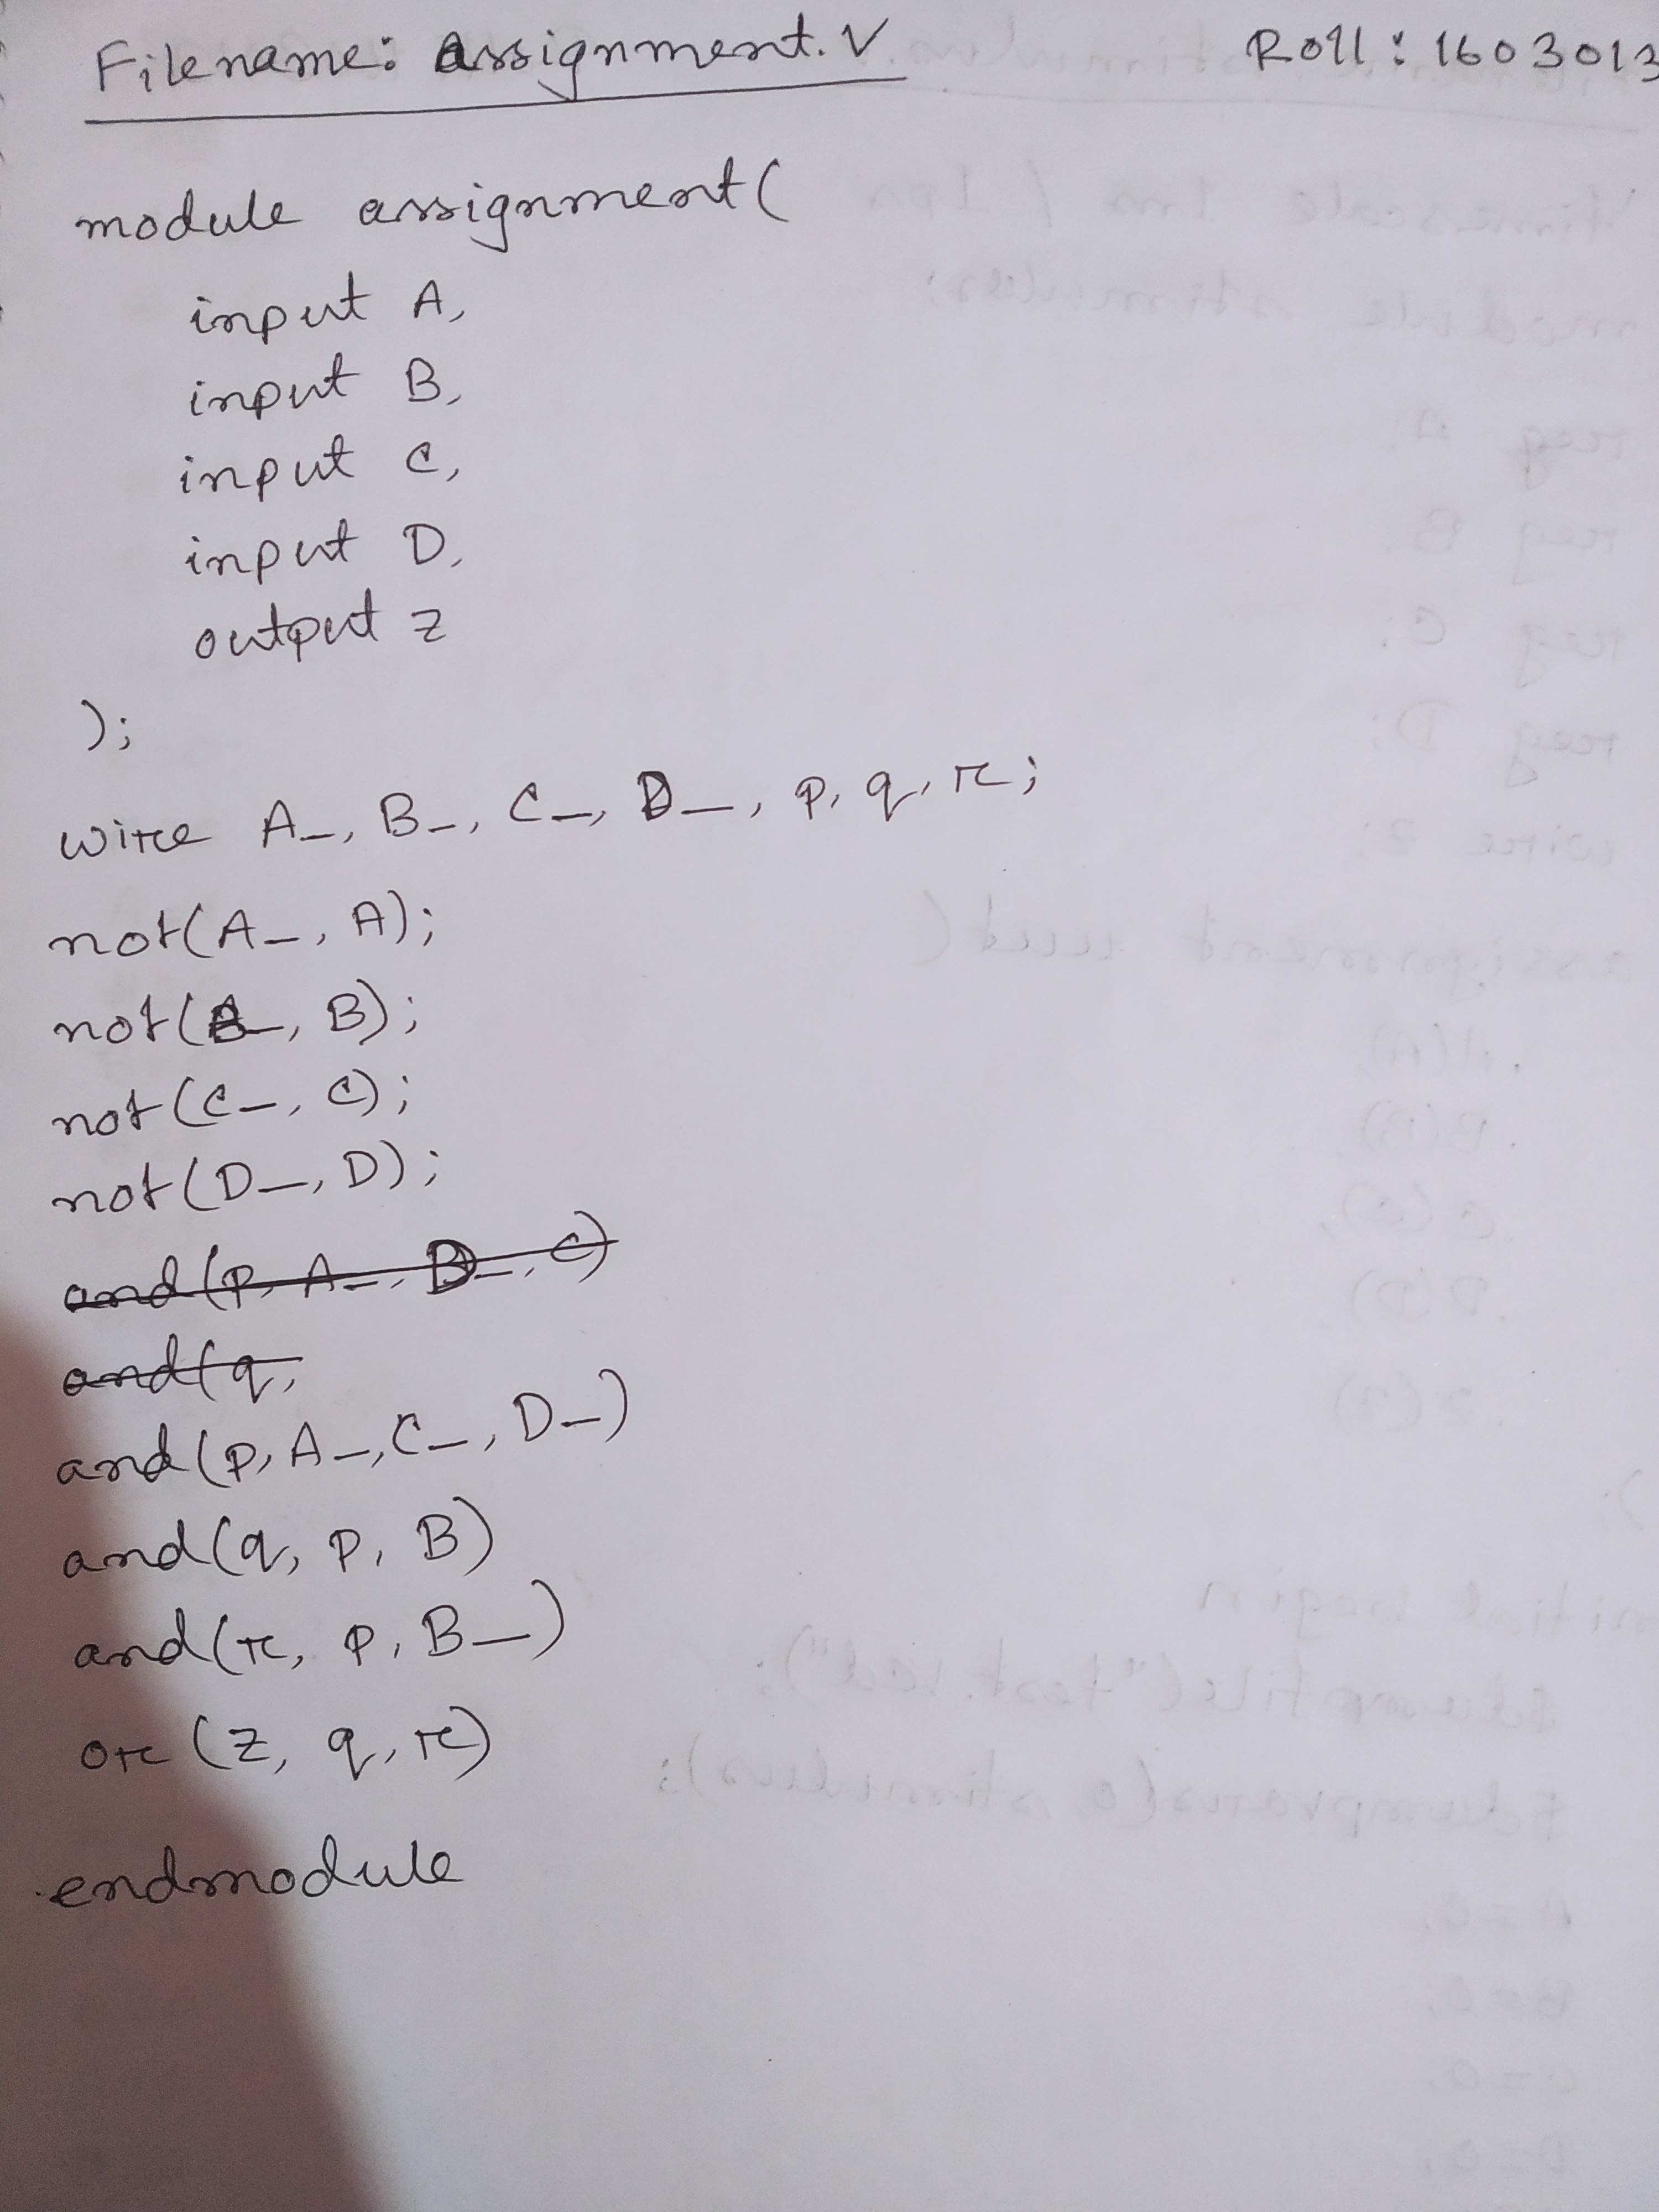 Filename: assignment.v Roll: 1603013
module assignment(
input A,
input B,
input C,
input D,
output z
);
wire A_, B_, C_, D_, p, q, r;
not(A_, A);
not(B_, B);
not(C_, C);
not(D_, D);
and(p, A_, B_, C)
and(q,
and(p, A_, C_, D_)
and(q, p, B)
and(r, p, B_)
or(z, q, r)
endmodule